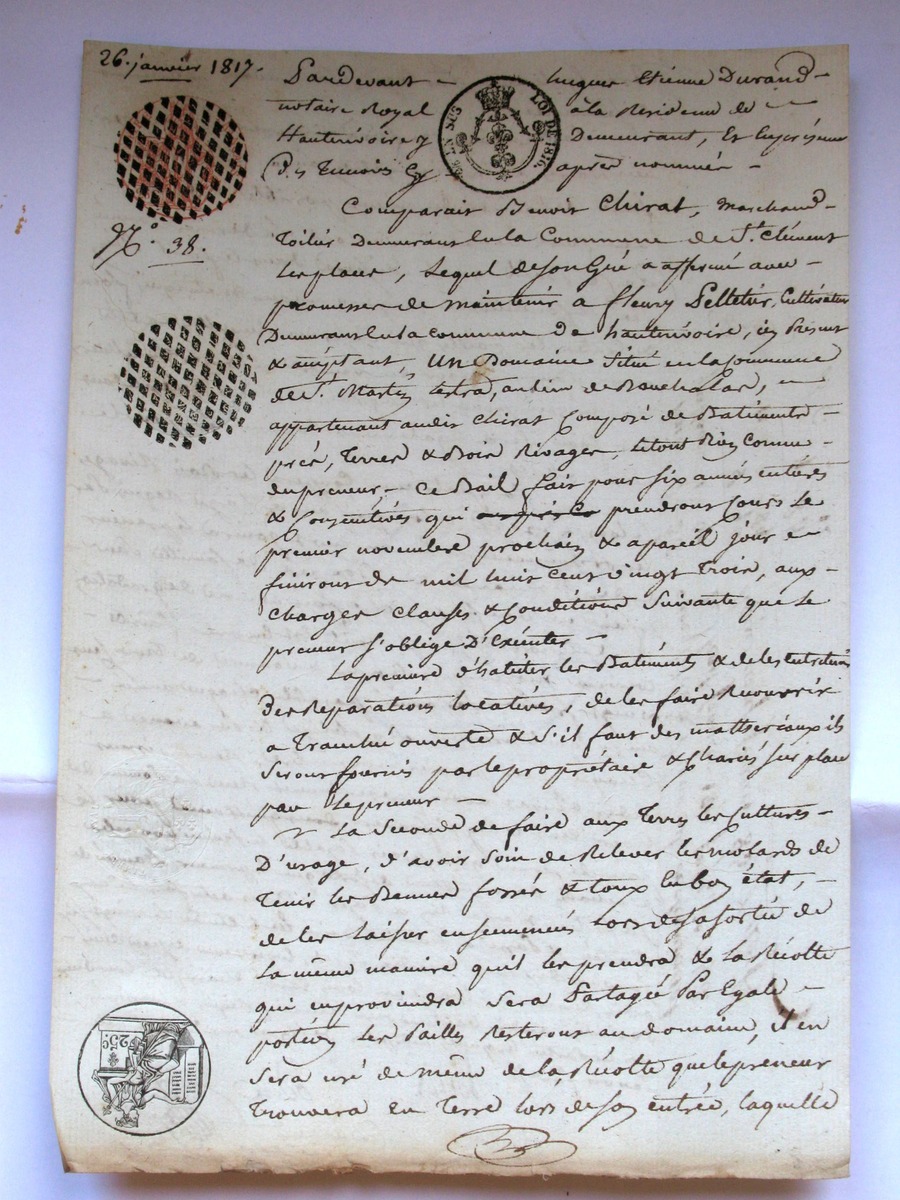 26. janvier 1817.
Pardevant hugues Etienne Durand
notaire Royal à la Residence de
Hauterivoire y Demeurant, Et En présence
Des Temoins après nommés
EN SUS LOI DE 1816.
Comparait Benoit Chirat, Marchand
N.° 38.
Toilier Demeurant en la Commune de S.t Clément
les places, Lequel de son Gré a affermé avec
promesses de maintenir a fleury Pelletier, Cultivateur
Demeurant en la commune de hauterivoire, ici Present
& acceptant, un Domaine Situé en la Commune
de S.t Martin Lestra, au lieu de
appartenant audit Chirat Composé de Batiments
prés, Terres & Bois Rivages, letout Bien Connu
du preneur, Ce Bail fait pour six années entières
& Consécutives qui prendront Cours Le
premier novembre prochain & apareil jour
finiront de mil huit cent vingt Trois, aux
Charges Clauses & Conditions Suivante que Le
preneur S'oblige D'Exécuter
La premiere d'habiter les Batiments & de les entretenir
Des Reparations locatives, de les faire Recouvrir
a Tranché ouverte & S'il faut des mattseriaux ils
Seront fournis par le propriétaire & Chariés sur place
par Le preneur
La Seconde de faire aux Terres les Cultures
D'usage, d'avoir soin de Relever les molards de
Tenir les fossés & toux en bon état,
de les laisser ensemencés Lors de sa Sortie de
La même maniere qu'il les prendra & La Récolte
qui en proviendra Sera Partagée Par Egale
portion Les Pailles Resteront au domaine, il en
Sera usé de même de la Récolte que le preneur
Trouvera en Terre lors de son entrée, laquelle
25c.